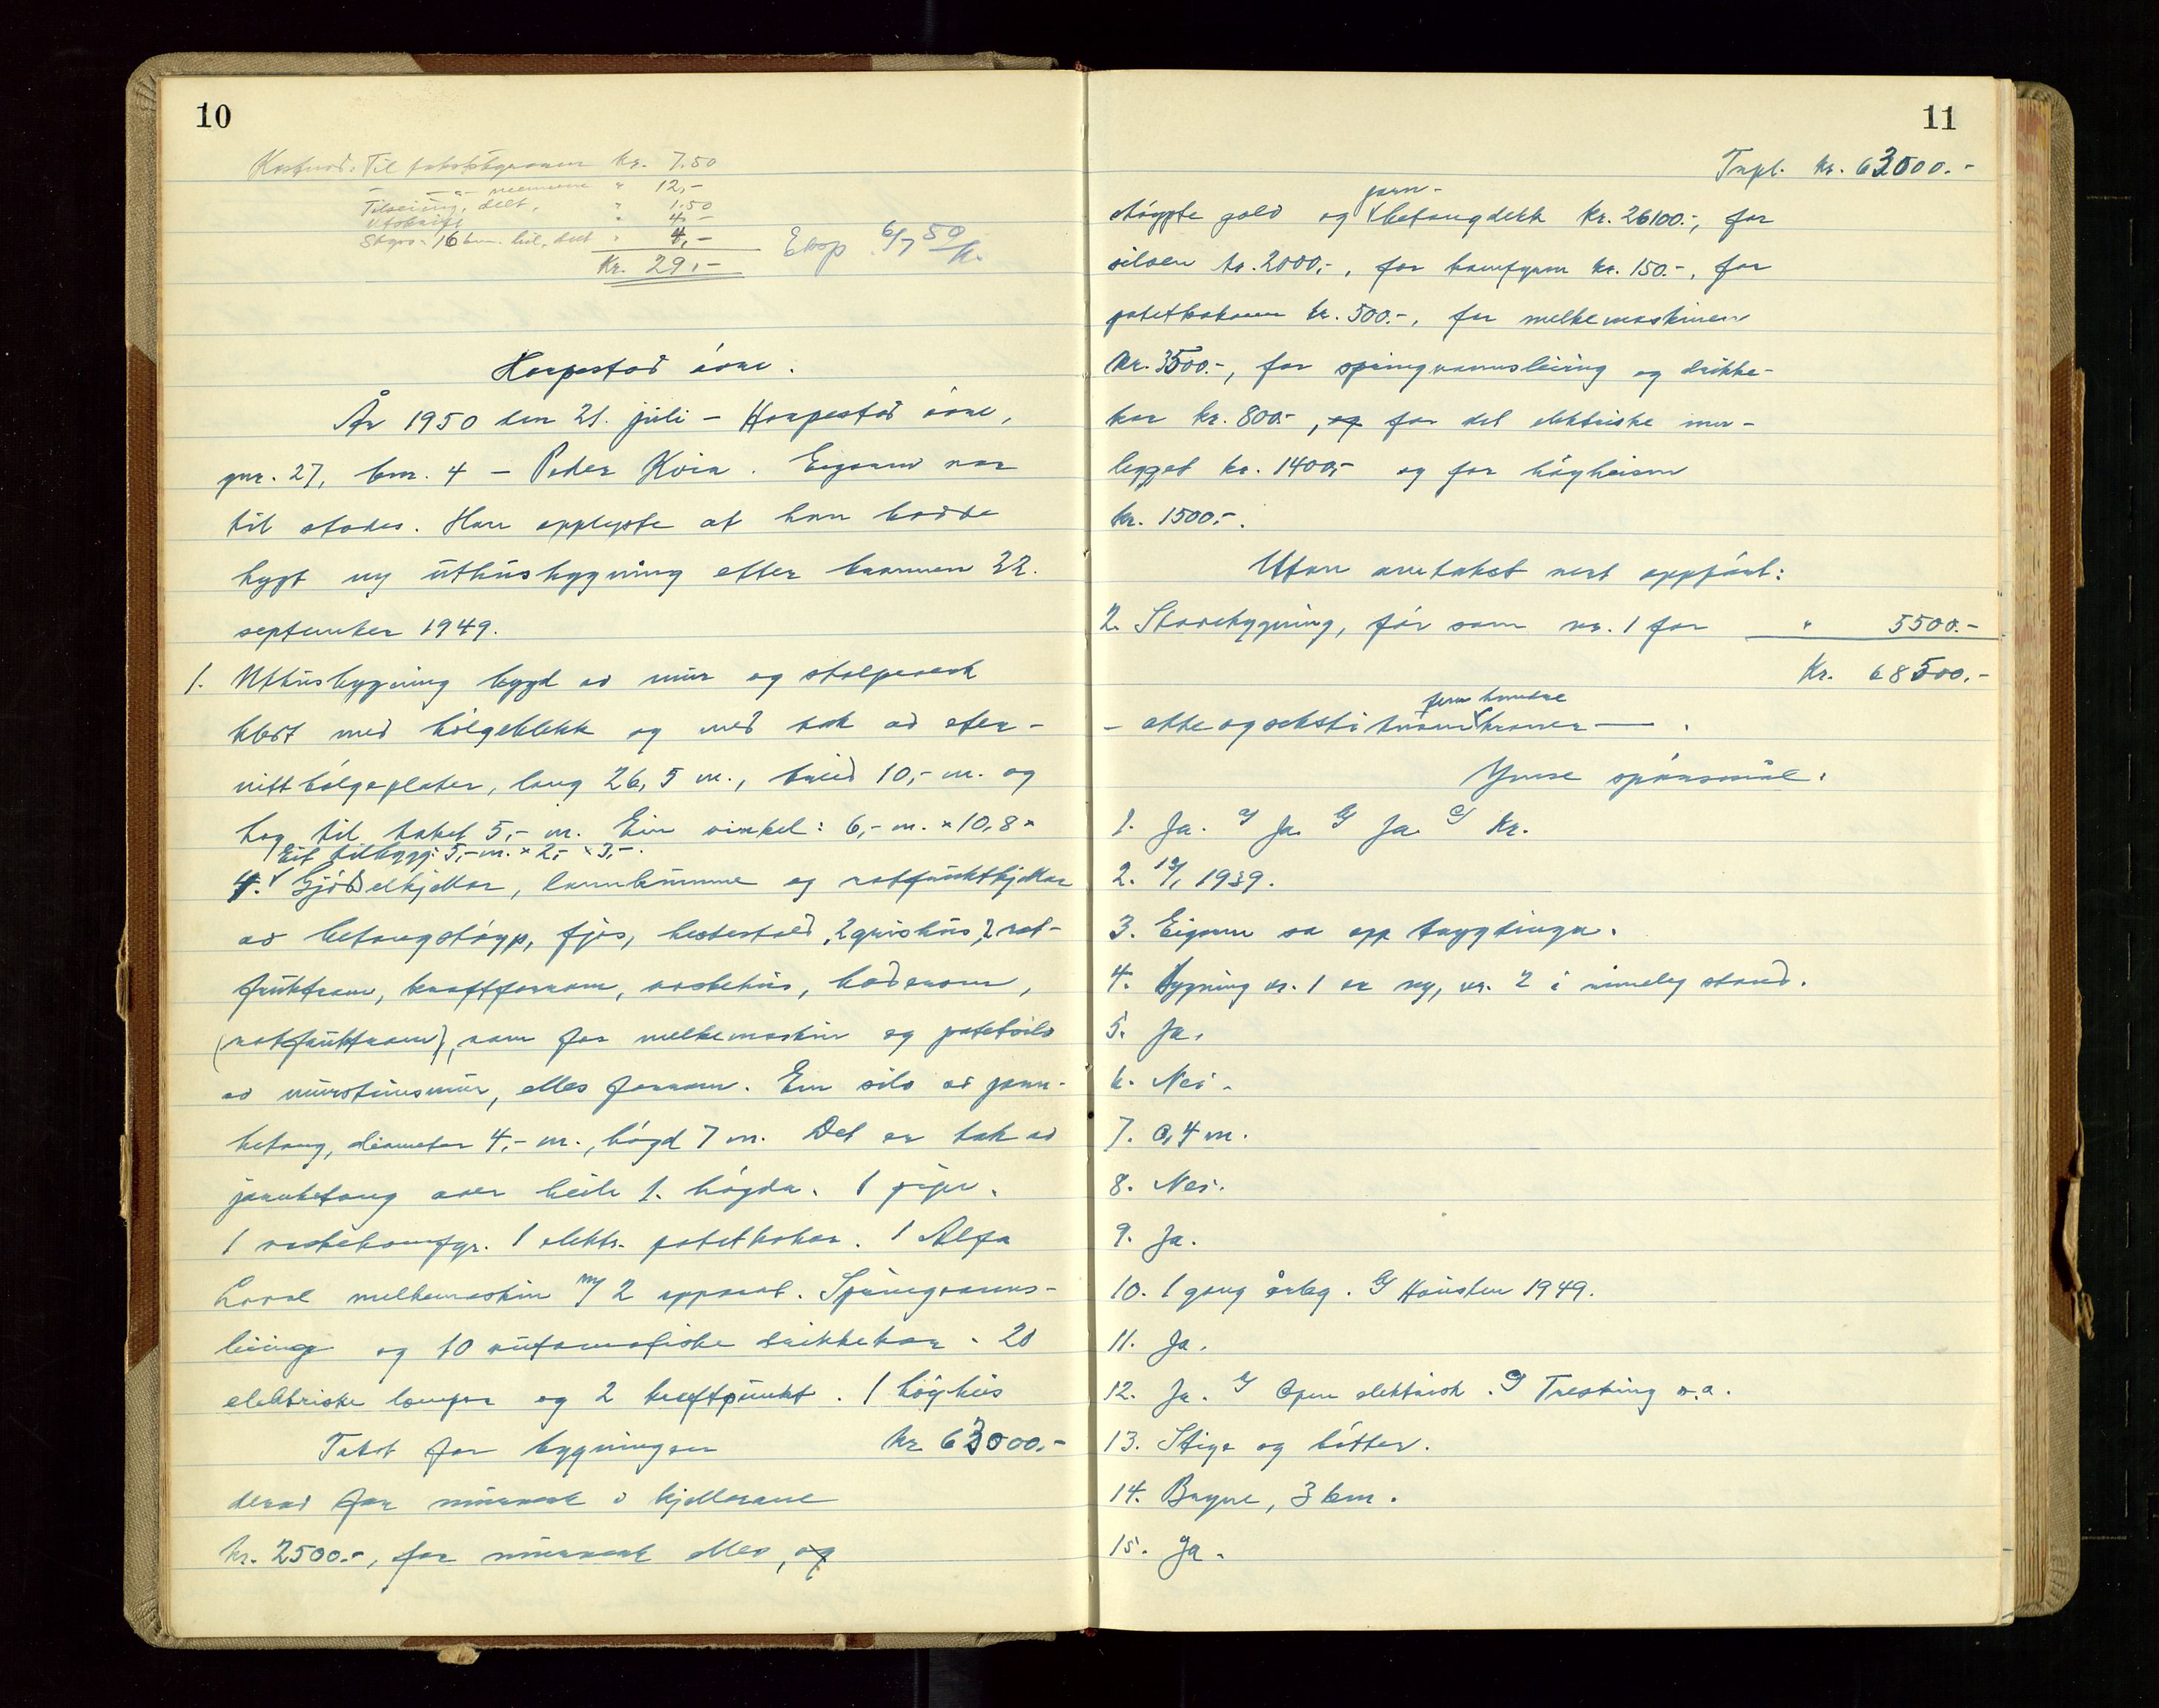 10
Kostnad: Til takstborgaren kr. 7.50
— " — mennene " 12,-
Tilseiing, delt, " 1.50
Utskrift " 4,-
Skyss- 16 km. bil, delt " 4,-
Kr. 29,-
Eksp 6/7 50
Harpestad øvre.
År 1950 den 21. juli - Harpestad øvre,
gnr. 27, bnr. 4 - Peder Kvia. Eigaren var
til stades. Han opplyste at han hadde
bygt ny uthusbygning etter brannen 22.
september 1949.
1. Uthusbygning bygd av mur og stolpeverk
kledt med bølgeblekk og med tak av eter-
nittbølgeplater, lang 26,5 m., breid 10,- m. og
høg til taket 5,- m. Ein vinkel: 6,- m. × 10,8 ×
Eit tilbygg: 5,- m. × 2,- × 3,-.
4. Gjødselkjellar, landkumme og rotfruktkjellar
av betongstøyp, fjøs, hestestall, 2 grishus, 2 rot-
fruktrom, kraftforrom, vaskehus, baderom,
(rotfruktrom), rom for melkemaskin og potetsilo
av mursteinsmur, elles forrom. Ein silo av jarn-
betong, diameter 4,- m., høgd 7 m. Det er tak av
jarnbetong over heile 1. høgda. 1 pipe.
1 vaskekomfyr. 1 elektr. potetkokar. 1 Alfa
Laval melkemaskin m/ 2 apparat. Springvanns-
leiing og 10 automatiske drikkekar. 20
elektriske lamper og 2 kraftpunkt. 1 høyheis
Takst for bygningen kr 63000.-
derav for murverk i kjellarane
kr. 2500.-, for murverk elles, og
11
Trspl. kr. 63000.-
jarn-
støypte golv og betongdekk kr. 26100.-, for
siloen kr. 2000,-, for komfyren kr. 150.-, for
potetkokaren kr. 500.-, for melkemaskinen
kr. 3500.-, for springvannsleiing og drikke-
kar kr. 800.-, og for det elektriske inn-
legget kr. 1400,- og for høyheisen
kr. 1500.-.
Utan omtakst vert oppført:
2. Stovebygning, før som nr. 1 for " 5500.-
Kr. 68500.-
fem hundre
- åtte og seksti tusen kroner - .
Ymse spørsmål.
1. Ja. b/ Ja. b/ Ja. c/ Kr.
2. 12/1 1939.
3. Eigaren sa opp trygdinga.
4. Bygning nr. 1 er ny, nr. 2 i rimeleg stand.
5. Ja.
6. Nei.
7. 0,4 m.
8. Nei.
9. Ja.
10. 1 gong årleg. b/ Hausten 1949.
11. Ja.
12. Ja. b/ Open elektrisk. c/ Tresking o.a.
13. Stige og bøtter.
14. Bryne, 3 km.
15. Ja.